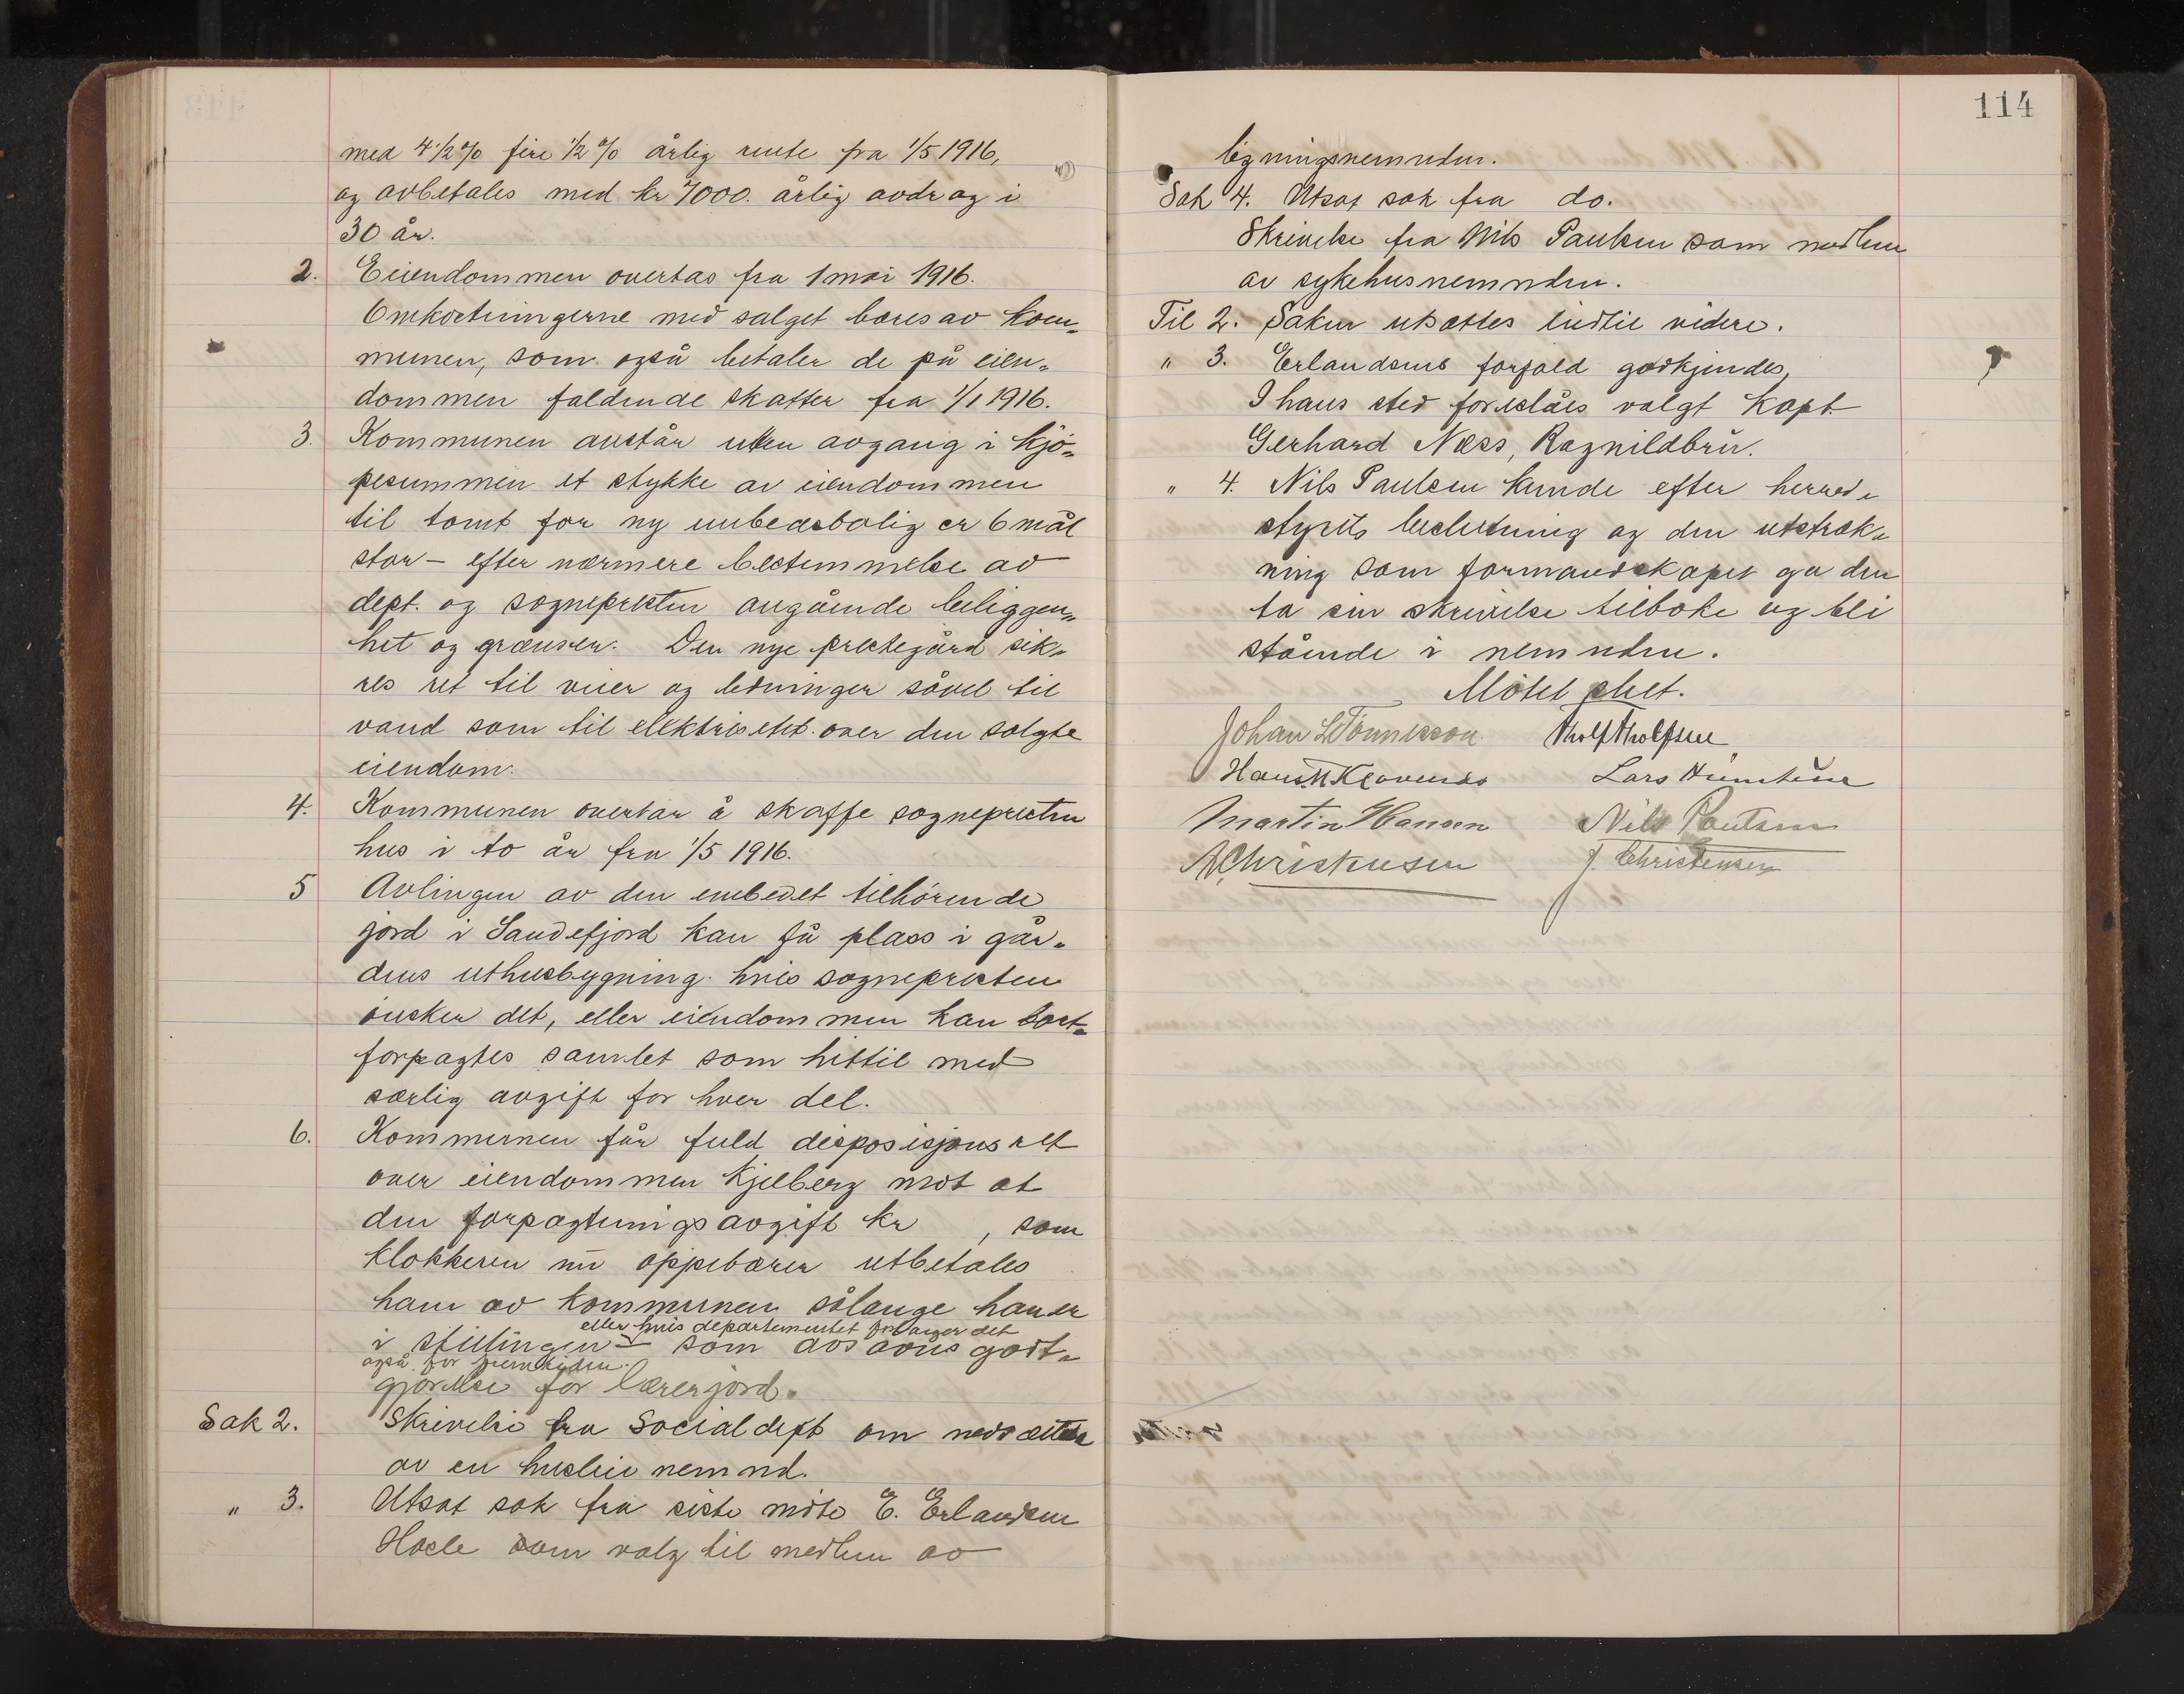 med 4 1/2 % fire 1/2 % årlig rente fra 1/5 1916,
og avbetales med kr 7000. årlig avdrag i
30 år.
2. Eiendommen overtas fra 1 mai 1916.
Omkostningerne med salget bæres av kom-
munen, som også betaler de på eien-
dommen faldende skatter fra 1/1 1916.
3. Kommunen avstår uten avgang i kjö-
pesummen et stykke av eiendommen
til tomt for ny embedsbolig ca 6 mål
stor – efter nærmere bestemmelse av
dept. og sognepresten angående beliggen-
het og grænser. Den nye prestegård sik-
res ret til veier og ledninger såvel til
vand som til elektrisitet over den solgte
eiendom.
4. Kommunen overtar å skaffe sognepresten
hus i to år fra 1/5 1916.
5 Avlingen av den embedet tilhörende
jord i Sandefjord kan få plass i går-
dens uthusbygning hvis sognepresten
önsker det, eller eiendommen kan bort-
forpagtes samlet som hittil med
særlig avgift for hver del.
6. Kommunen får fuld disposisjonsret
over eiendommen Kjelberg mot at
den forpagtningsavgift kr , som
klokkeren nu oppebærer utbetales
ham av kommunen sålange han er
eller hvis departementet forlanger det
i stillingen – som avsavns godt-
også for fremtiden.
gjörelse for lærerjord.
Sak 2. Skrivelse fra Socialdept om nedsættelse
av en husleie nemnd.
" 3. Utsat sak fra siste möte E. Erlandsen
Hasle som valg til medlem av
114
ligningsnemnden.
Sak 4. Utsat sak fra do.
Skrivelse fra Nils Paulsen som medlem
av sykehusnemnden.
Til 2. Saken utsættes indtil videre.
" 3. Erlandsens forfald godkjendes,
I hans sted foreslåes valgt Kapt
Gerhard Næss, Ragnildbru.
" 4. Nils Paulsen kunde efter herreds
styrets beslutning og den utstræk-
ning som formandskapet ga den
ta sin skrivelse tilbake og bli
stående i nemnden.
Mötet slut.
Johan L Tönnesson Tholf Tholfsen
Hans N Klavenes Lars
Martin Hansen Nils Paulsen
A Christensen J. Christensen